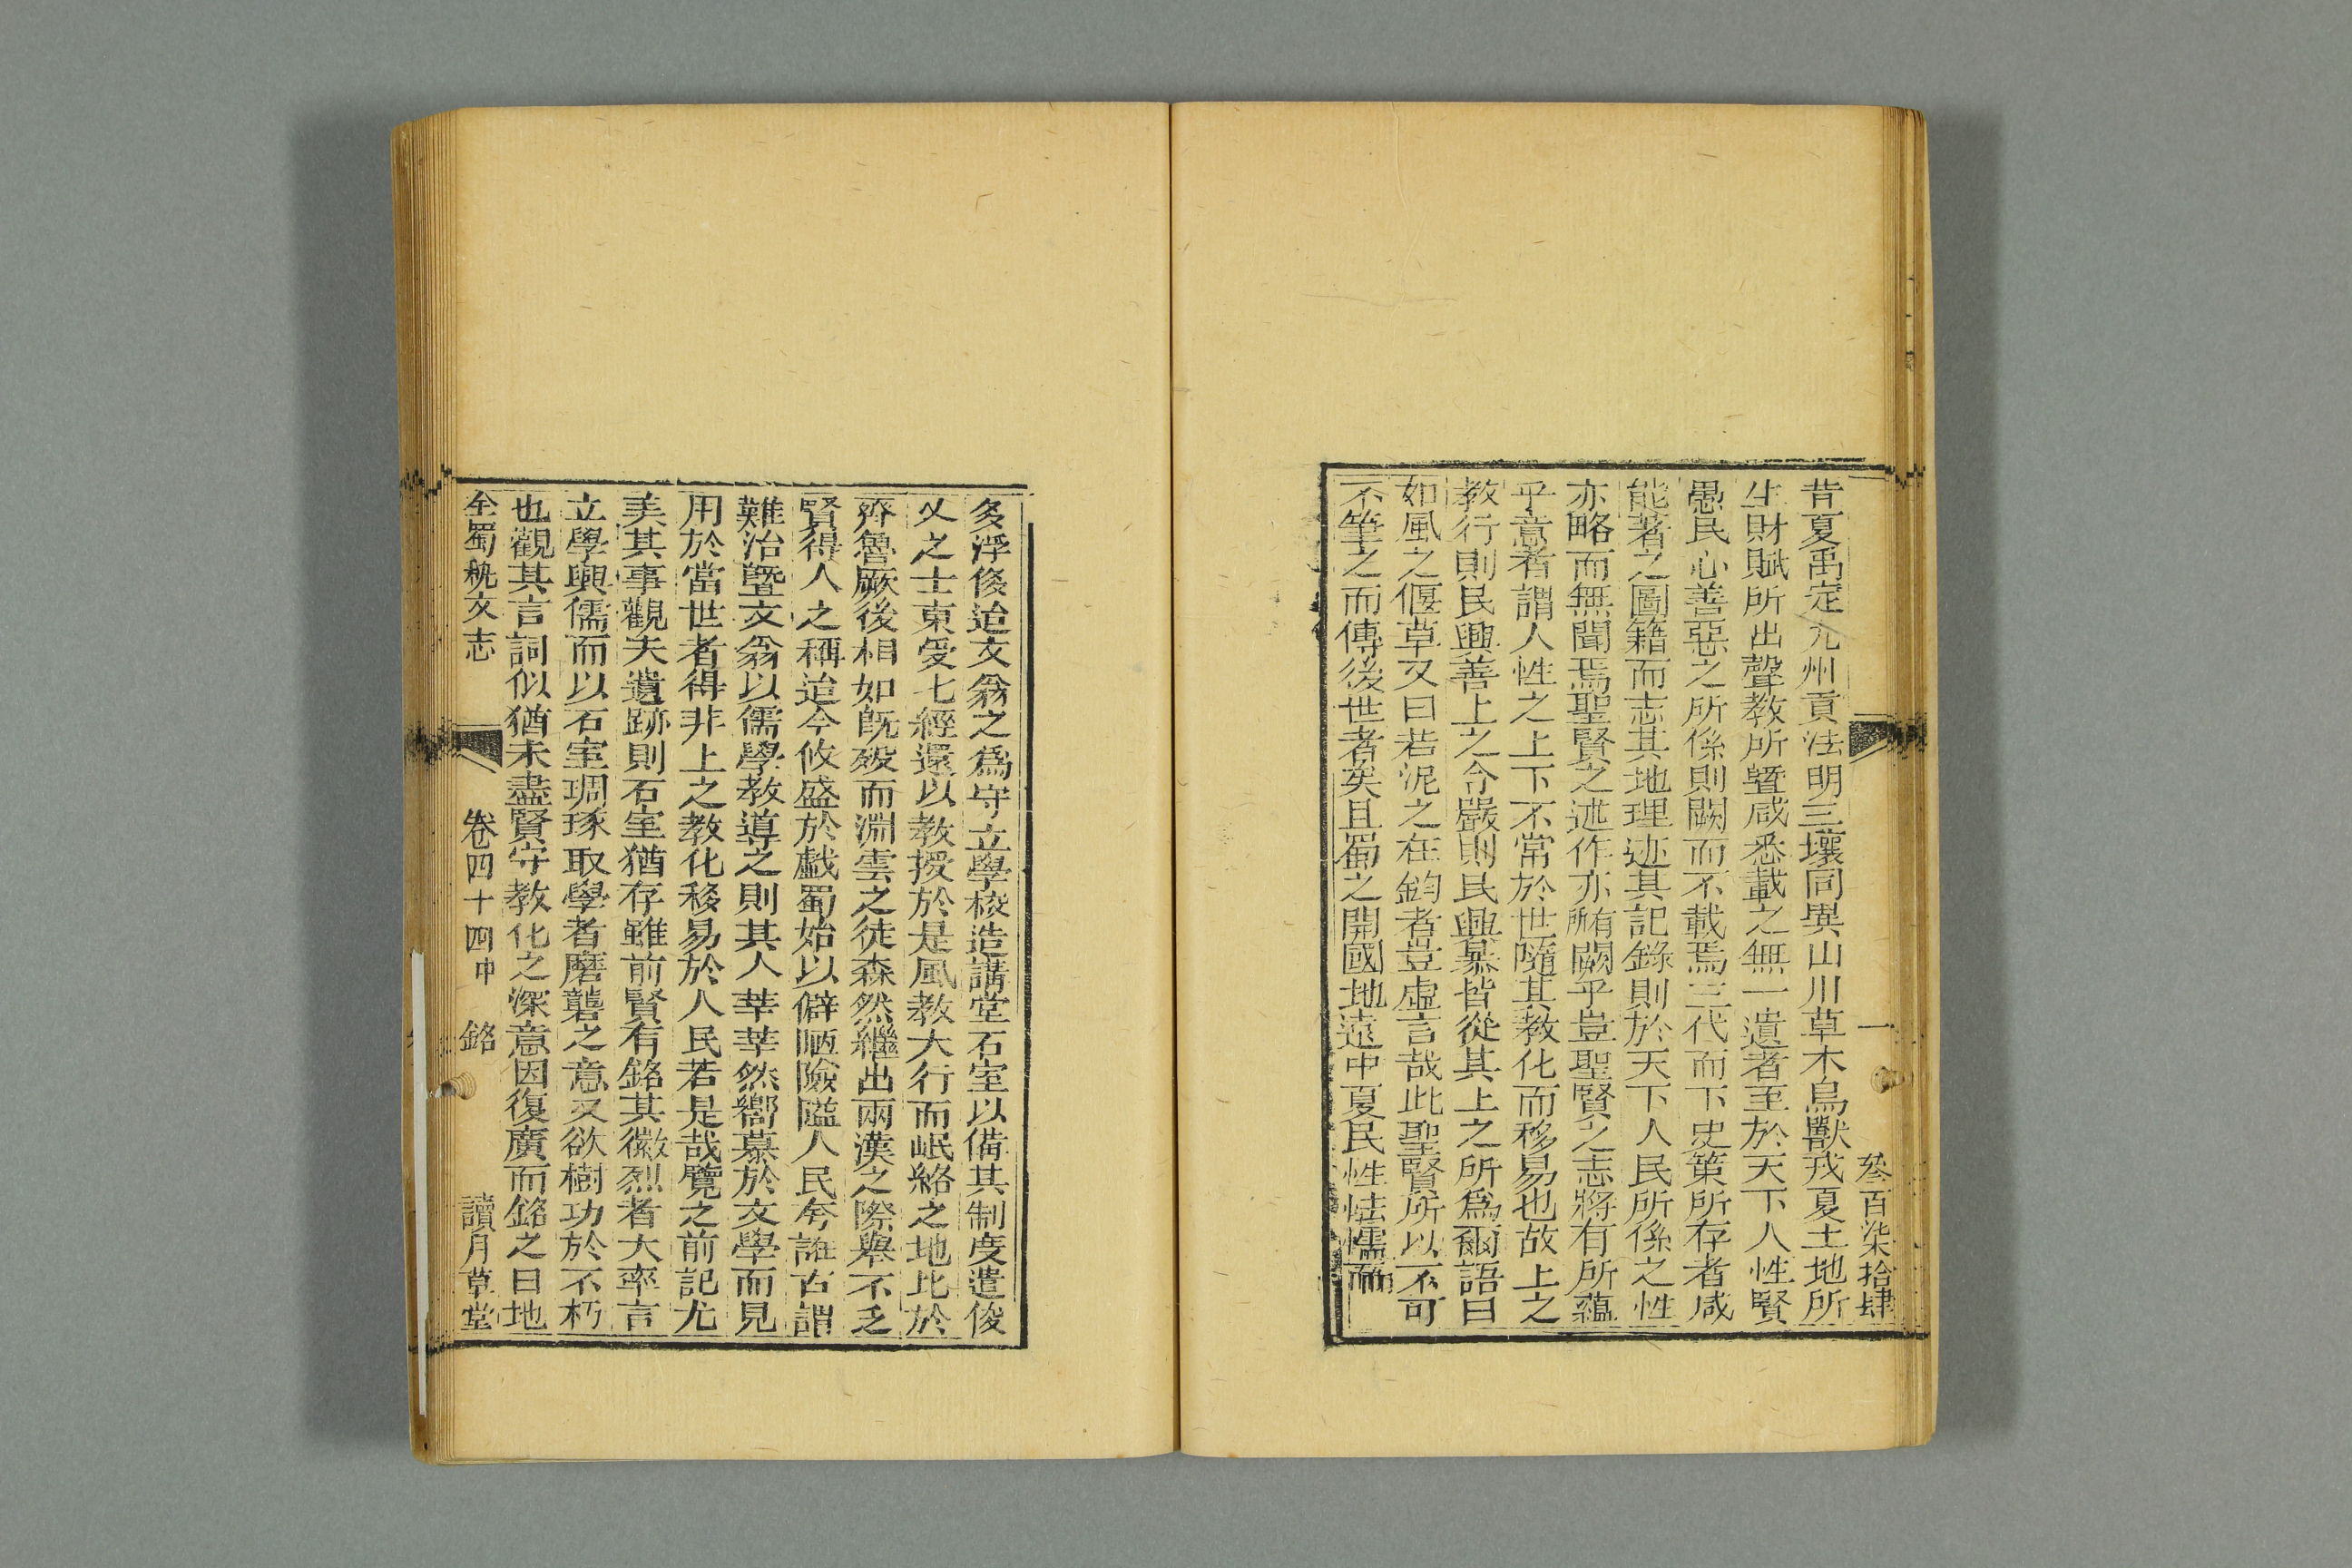 一　叄百柒拾肆
昔夏禹定九州貢法明三壤同異山川草木鳥獸戎夏土地所
生財賦所出聲教所曁咸悉載之無一遺者至於天下人性賢
愚民心善惡之所係則闕而不載焉三代而下史策所存者咸
能著之圖籍而志其地理迹其記錄則於天下人民所係之性
亦略而無聞焉聖賢之述作亦有闕乎豈聖賢之志將有所蘊
乎意者謂人性之上下不常於世隨其教化而移易也故上之
教行則民興善上之令嚴則民興暴皆從其上之所爲爾語曰
如風之偃草又曰若泥之在鈞者豈虛言哉此聖賢所以不可
不筆之而傳後世者矣且蜀之開國地遠中夏民性怯懦而
多浮俊迨文翁之爲守立學校造講堂石室以備其制度遣俊
乂之士東受七經還以教授於是風教大行而岷絡之地比於
齊魯厥後相如旣歿而淵雲之徒森然繼出兩漢之際舉不乏
賢得人之稱迨今攸盛於戲蜀始以僻陋險隘人民夸誰古謂
難治曁文翁以儒學教導之則其人莘莘然嚮慕於文學而見
用於當世者得非上之教化移易於人民若是哉覽之前記尤
美其事觀夫遺跡則石室猶存雖前賢有銘其徽烈者大率言
立學興儒而以石室琱琢取學者磨礱之意又欲樹功於不朽
也觀其言詞似猶未盡賢守教化之深意因復廣而銘之曰地
全蜀秇文志　卷四十四中　銘　讀月草堂